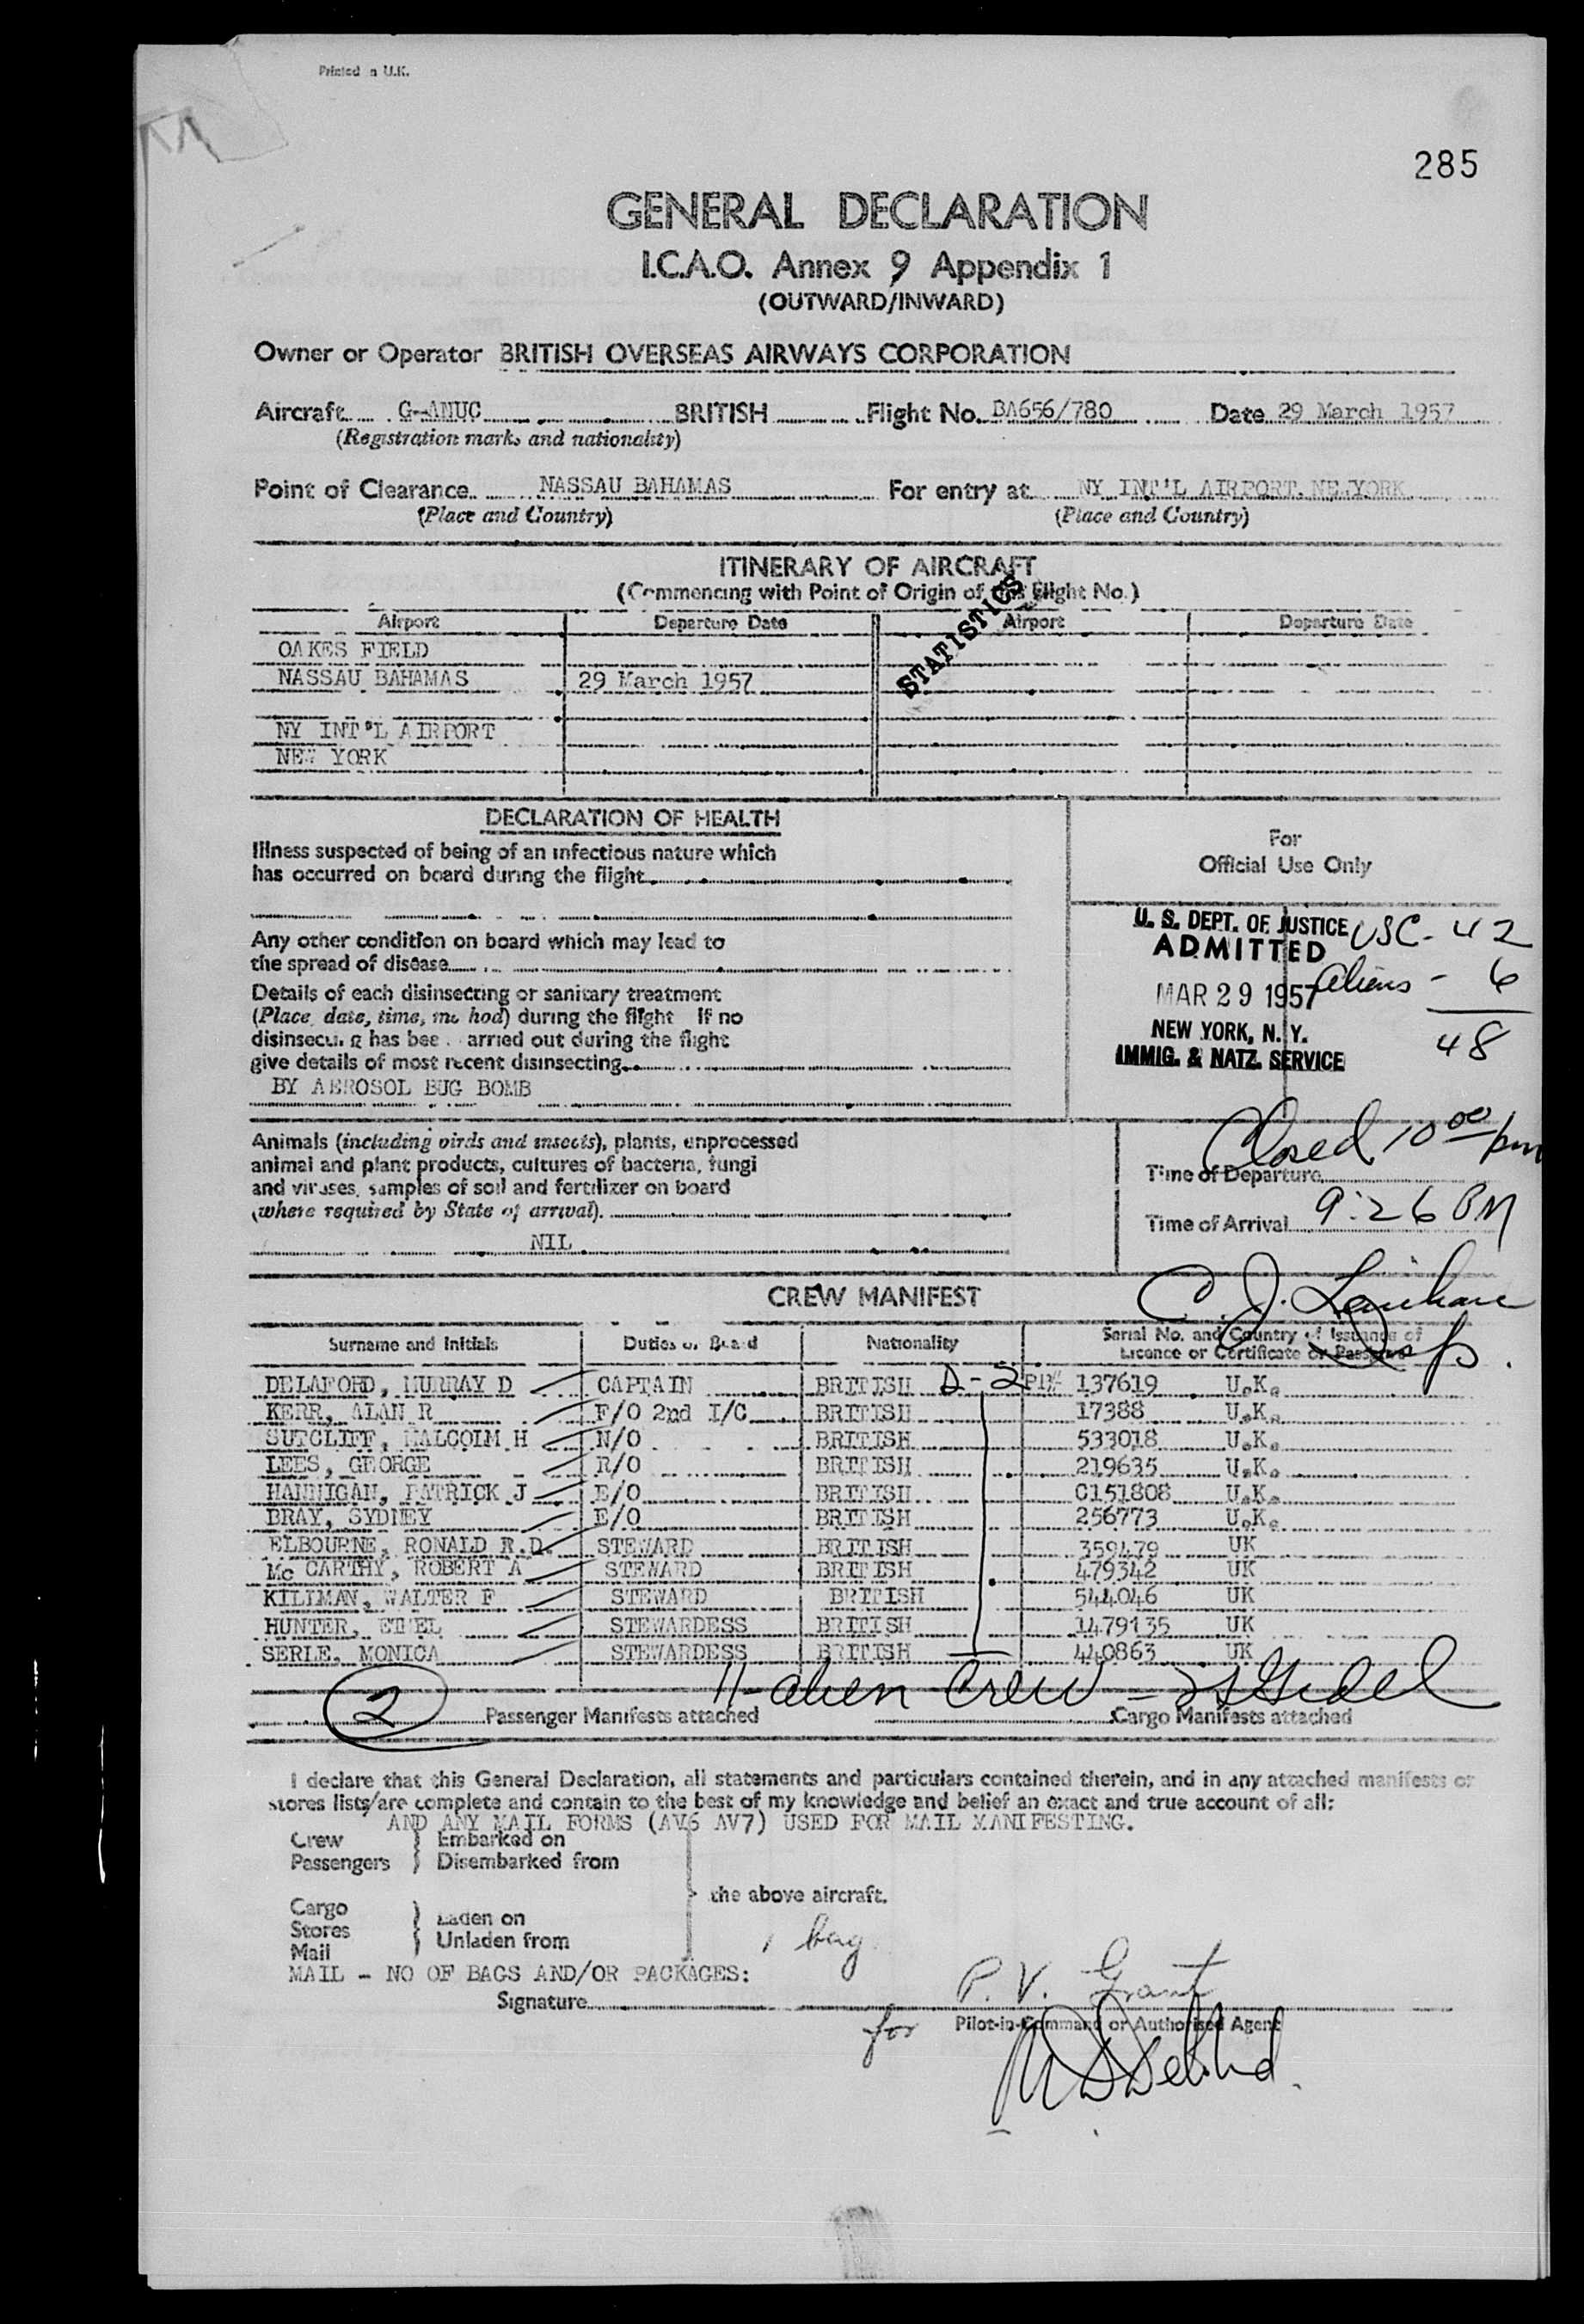 Printed in U.K.
285
GENERAL DECLARATION
I.C.A.O. Annex 9 Appendix 1
(OUTWARD/INWARD)
Owner or Operator BRITISH OVERSEAS AIRWAYS CORPORATION
Aircraft G-ANUC BRITISH Flight No. BA656/780 Date 29 March 1957
(Registration marks and nationality)
Point of Clearance NASSAU BAHAMAS For entry at NY INT'L AIRPORT. NEWYORK
(Place and Country) (Place and Country)
ITINERARY OF AIRCRAFT
(Commencing with Point of Origin of this Flight No.)
STATISTICS
Airport Departure Date Airport Departure Date
OAKES FIELD
NASSAU BAHAMAS 29 March 1957
NY INT'L AIRPORT
NEW YORK
DECLARATION OF HEALTH
For
Official Use Only
Illness suspected of being of an infectious nature which
has occurred on board during the flight
Any other condition on board which may lead to
the spread of disease
Details of each disinsecting or sanitary treatment
(Place, date, time, method) during the flight If no
disinsecting has been carried out during the flight
give details of most recent disinsecting
BY AEROSOL BUG BOMB
U. S. DEPT. OF JUSTICE USC - 42
ADMITTED
aliens - 6
MAR 29 1957
NEW YORK, N. Y. 48
IMMIG. & NATZ. SERVICE
Animals (including birds and insects), plants, unprocessed
animal and plant products, cultures of bacteria, fungi
and viruses, samples of soil and fertilizer on board
(where required by State of arrival).
NIL
Closed 10 00 pm
Time of Departure
Time of Arrival 9:26 PM
C. J.
CREW MANIFEST
Surname and Initials Duties on Board Nationality Serial No. and Country of Issuance of
Licence or Certificate or Passport
DELAFORD, MURRAY D CAPTAIN BRITISH D-2 137619 U.K.
KERR, ALAN R F/O 2nd I/C BRITISH 17388 U.K.
SUTCLIFF, MALCOLM H N/O BRITISH 533018 U.K.
LEES, GEORGE R/O BRITISH 219635 U.K.
HANNIGAN, PATRICK J E/O BRITISH C151808 U.K.
BRAY, SYDNEY E/O BRITISH 256773 U.K.
ELBOURNE, RONALD R.D. STEWARD BRITISH 359479 UK
Mc CARTHY, ROBERT A STEWARD BRITISH 479342 UK
KILLMAN, WALTER F STEWARD BRITISH 544046 UK
HUNTER, ETHEL STEWARDESS BRITISH 1479135 UK
SERLE, MONICA STEWARDESS BRITISH 440863 UK
11-alien Crew -
2 Passenger Manifests attached Cargo Manifests attached
I declare that this General Declaration, all statements and particulars contained therein, and in any attached manifests or
stores lists/are complete and contain to the best of my knowledge and belief an exact and true account of all:
AND ANY MAIL FORMS (AV6 AV7) USED FOR MAIL MANIFESTING.
Crew Embarked on
Passengers Disembarked from
the above aircraft.
Cargo
Stores Laden on
Mail Unladen from
1 bag
MAIL - NO OF BAGS AND/OR PACKAGES:
P. V. Grant
Signature
for Pilot-in-Command or Authorised Agent